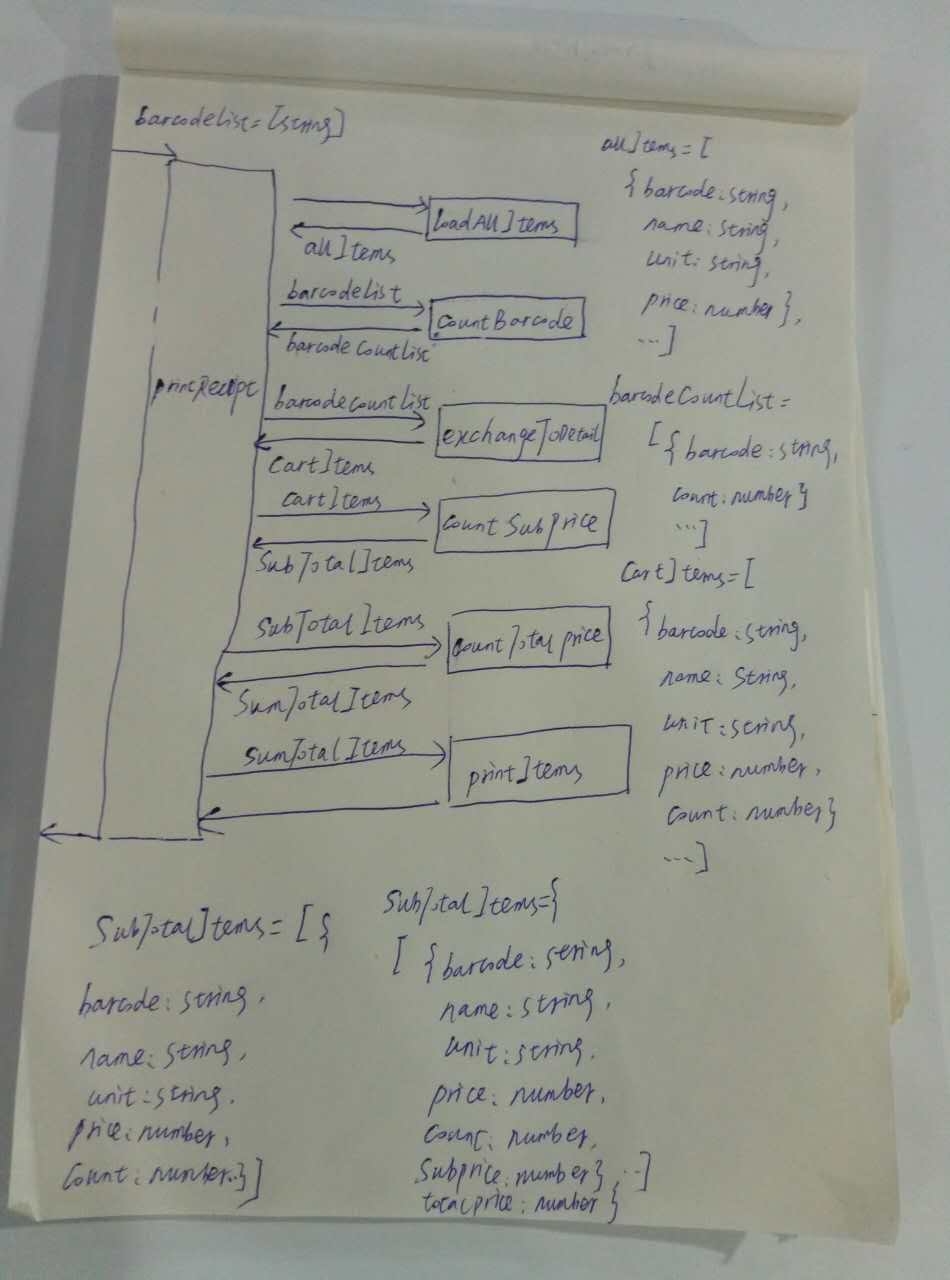 barcodeList=[string]
loadAllItems
allItems
barcodeList
countBarcode
barcodeCountList
printReceipt
barcodeCountList
exchangeToDetail
CartItems
CartItems
countSubprice
SubTotalItems
SubTotalItems
CountTotalprice
SumTotalItems
SumTotalItems
printItems
allItems=[
{barcode:string,
name:string,
unit:string,
price:number},
...]
barcodeCountList=
[{barcode:string,
count:number}
...]
CartItems=[
{barcode:string,
name:String,
unit:string,
price:number,
Count:number}
...]
SubTotalItems=[{
barcode:string,
name:string,
unit:string.
price:number,
Count:number..}]
SubTotalItems={
[{barcode:string,
name:string,
unit:string.
price:number,
Count:number,
Subprice:number},..]
totalprice:number}